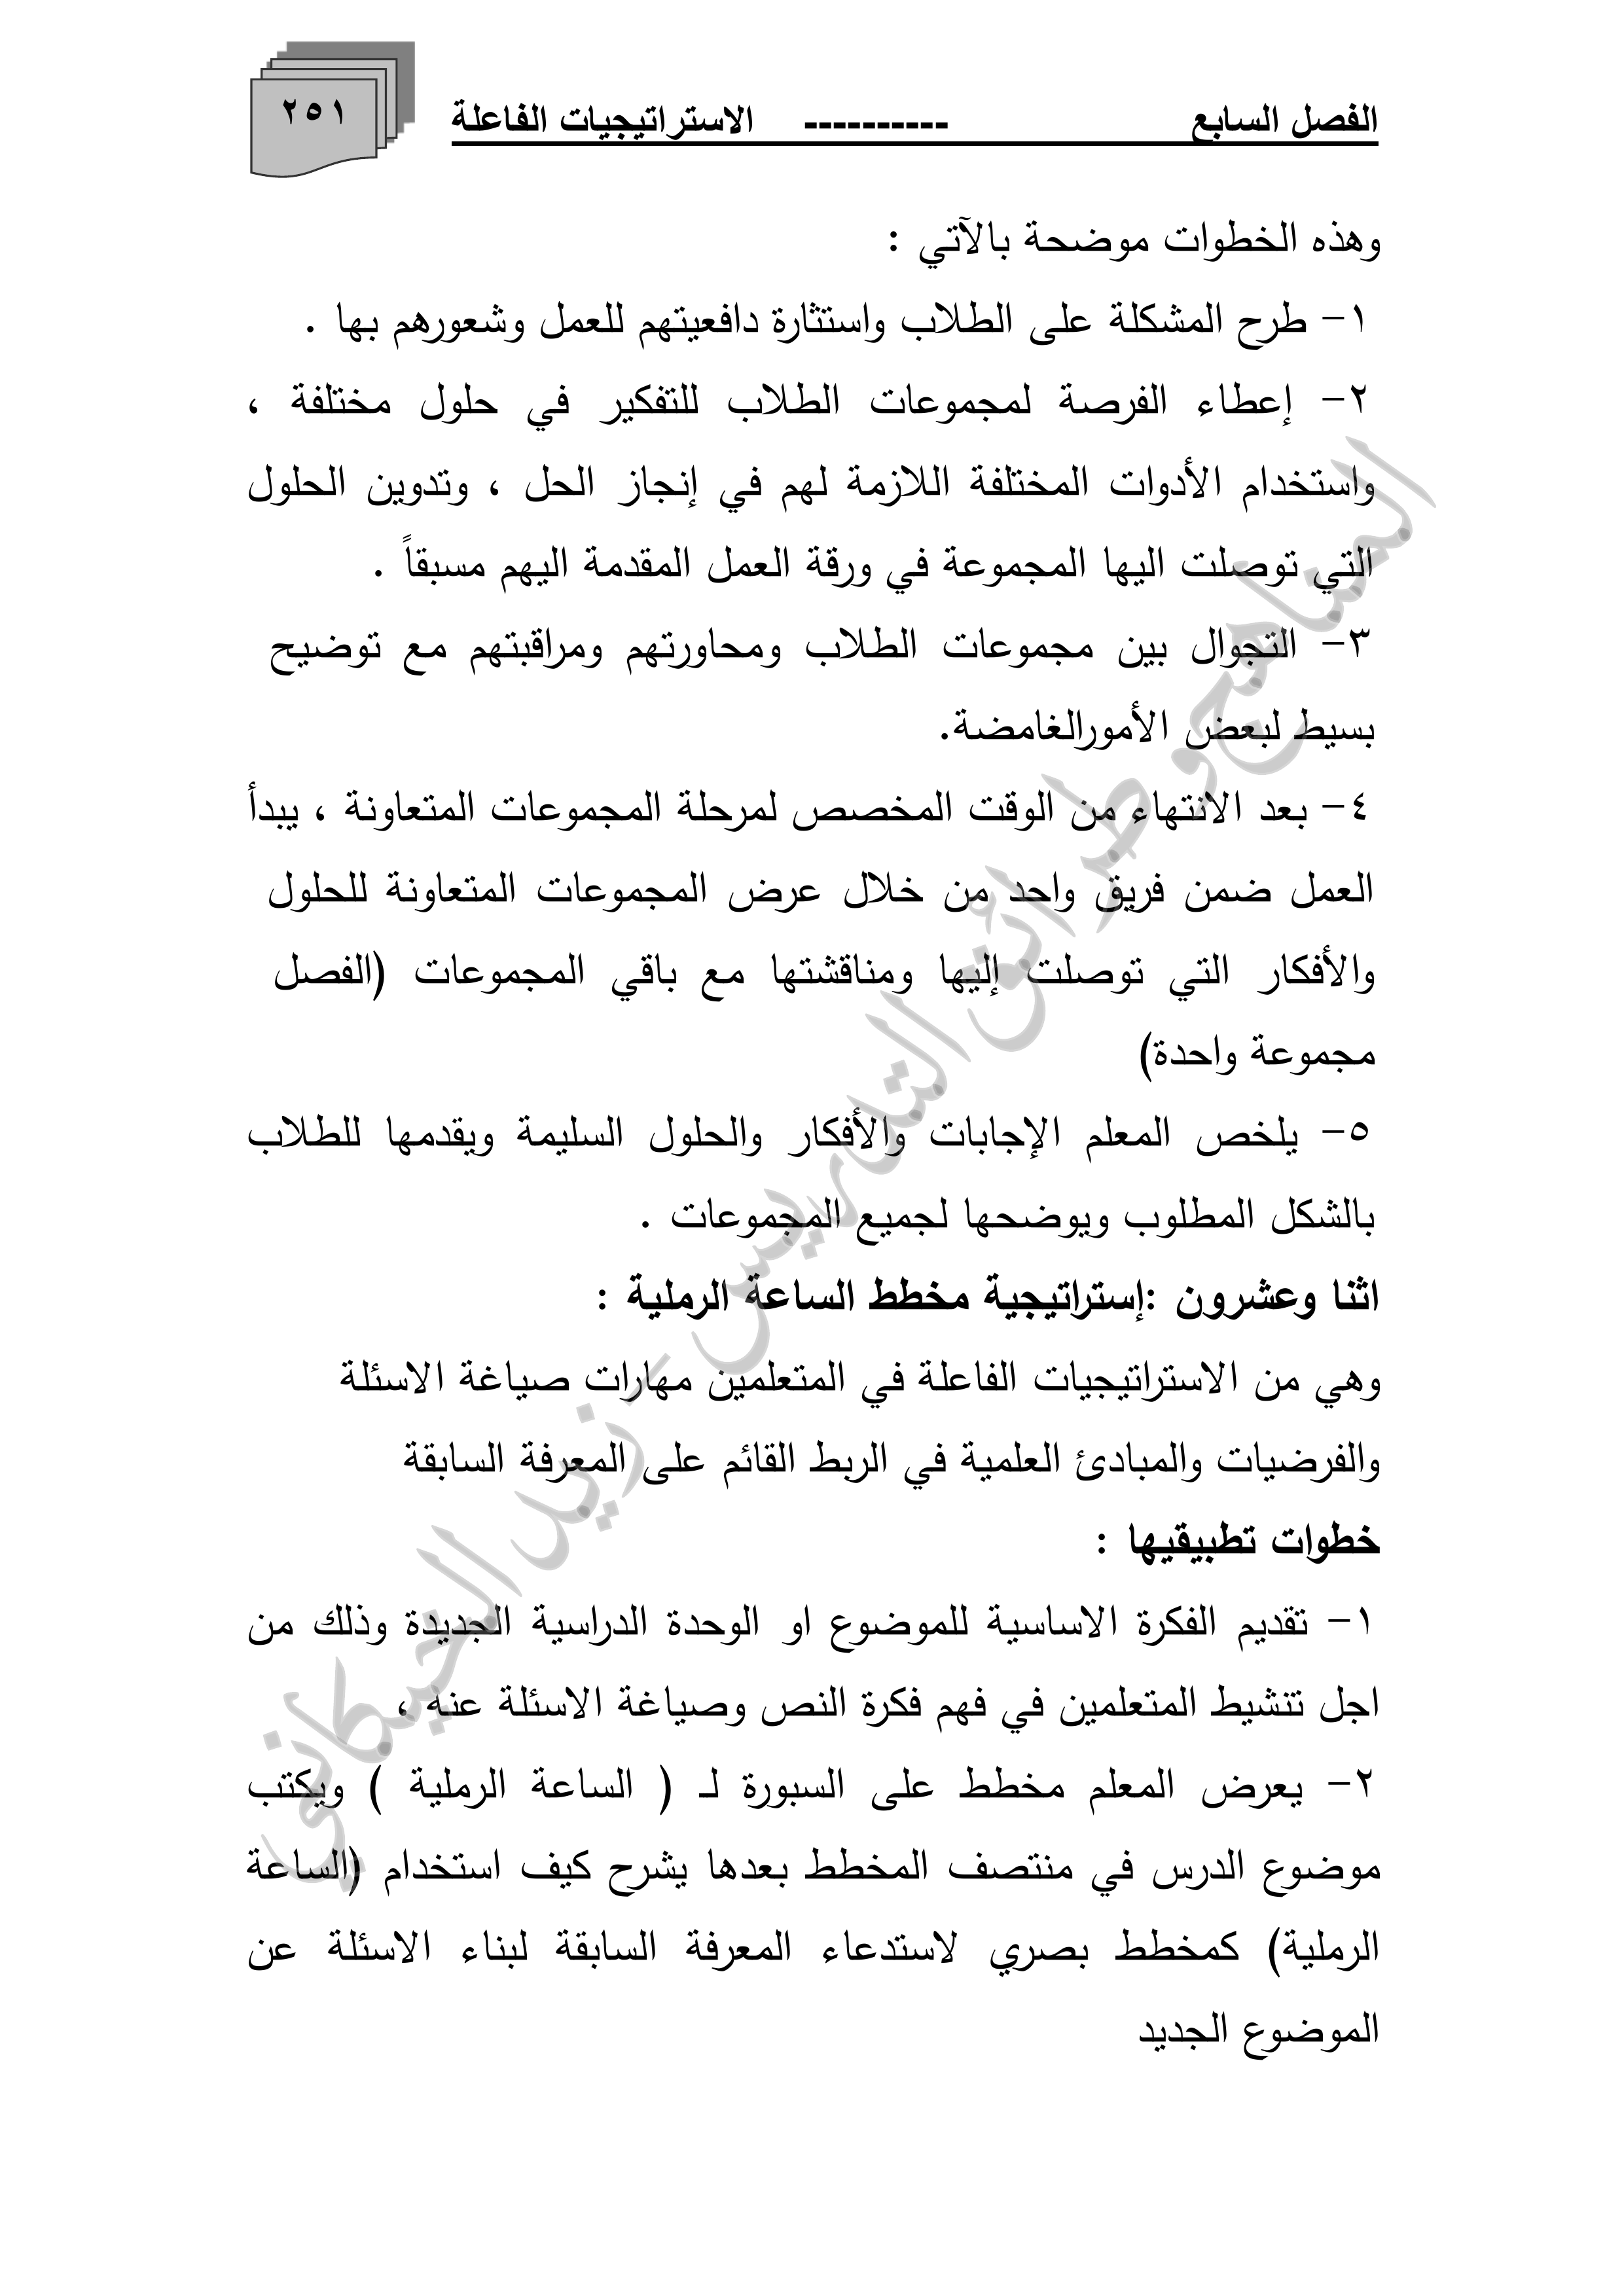 الفصل السابع ---------- الاستراتيجيات الفاعلة
٢٥١
وهذه الخطوات موضحة بالآتي :
١- طرح المشكلة على الطلاب واستثارة دافعيتهم للعمل وشعورهم بها .
٢- إعطاء الفرصة لمجموعات الطلاب للتفكير في حلول مختلفة ،
واستخدام الأدوات المختلفة اللازمة لهم في إنجاز الحل ، وتدوين الحلول
التي توصلت اليها المجموعة في ورقة العمل المقدمة اليهم مسبقاً .
٣- التجوال بين مجموعات الطلاب ومحاورتهم ومراقبتهم مع توضيح
بسيط لبعض الأمورالغامضة.
٤- بعد الانتهاء من الوقت المخصص لمرحلة المجموعات المتعاونة ، يبدأ
العمل ضمن فريق واحد من خلال عرض المجموعات المتعاونة للحلول
والأفكار التي توصلت إليها ومناقشتها مع باقي المجموعات (الفصل
مجموعة واحدة)
٥- يلخص المعلم الإجابات والأفكار والحلول السليمة ويقدمها للطلاب
بالشكل المطلوب ويوضحها لجميع المجموعات .
اثنا وعشرون :إستراتيجية مخطط الساعة الرملية :
وهي من الاستراتيجيات الفاعلة في المتعلمين مهارات صياغة الاسئلة
والفرضيات والمبادئ العلمية في الربط القائم على المعرفة السابقة
خطوات تطبيقيها :
١- تقديم الفكرة الاساسية للموضوع او الوحدة الدراسية الجديدة وذلك من
اجل تنشيط المتعلمين في فهم فكرة النص وصياغة الاسئلة عنه ،
٢- يعرض المعلم مخطط على السبورة لـ ( الساعة الرملية ) ويكتب
موضوع الدرس في منتصف المخطط بعدها يشرح كيف استخدام (الساعة
الرملية) كمخطط بصري لاستدعاء المعرفة السابقة لبناء الاسئلة عن
الموضوع الجديد
المناهج وطرائق التدريس - زيد الخيكاني